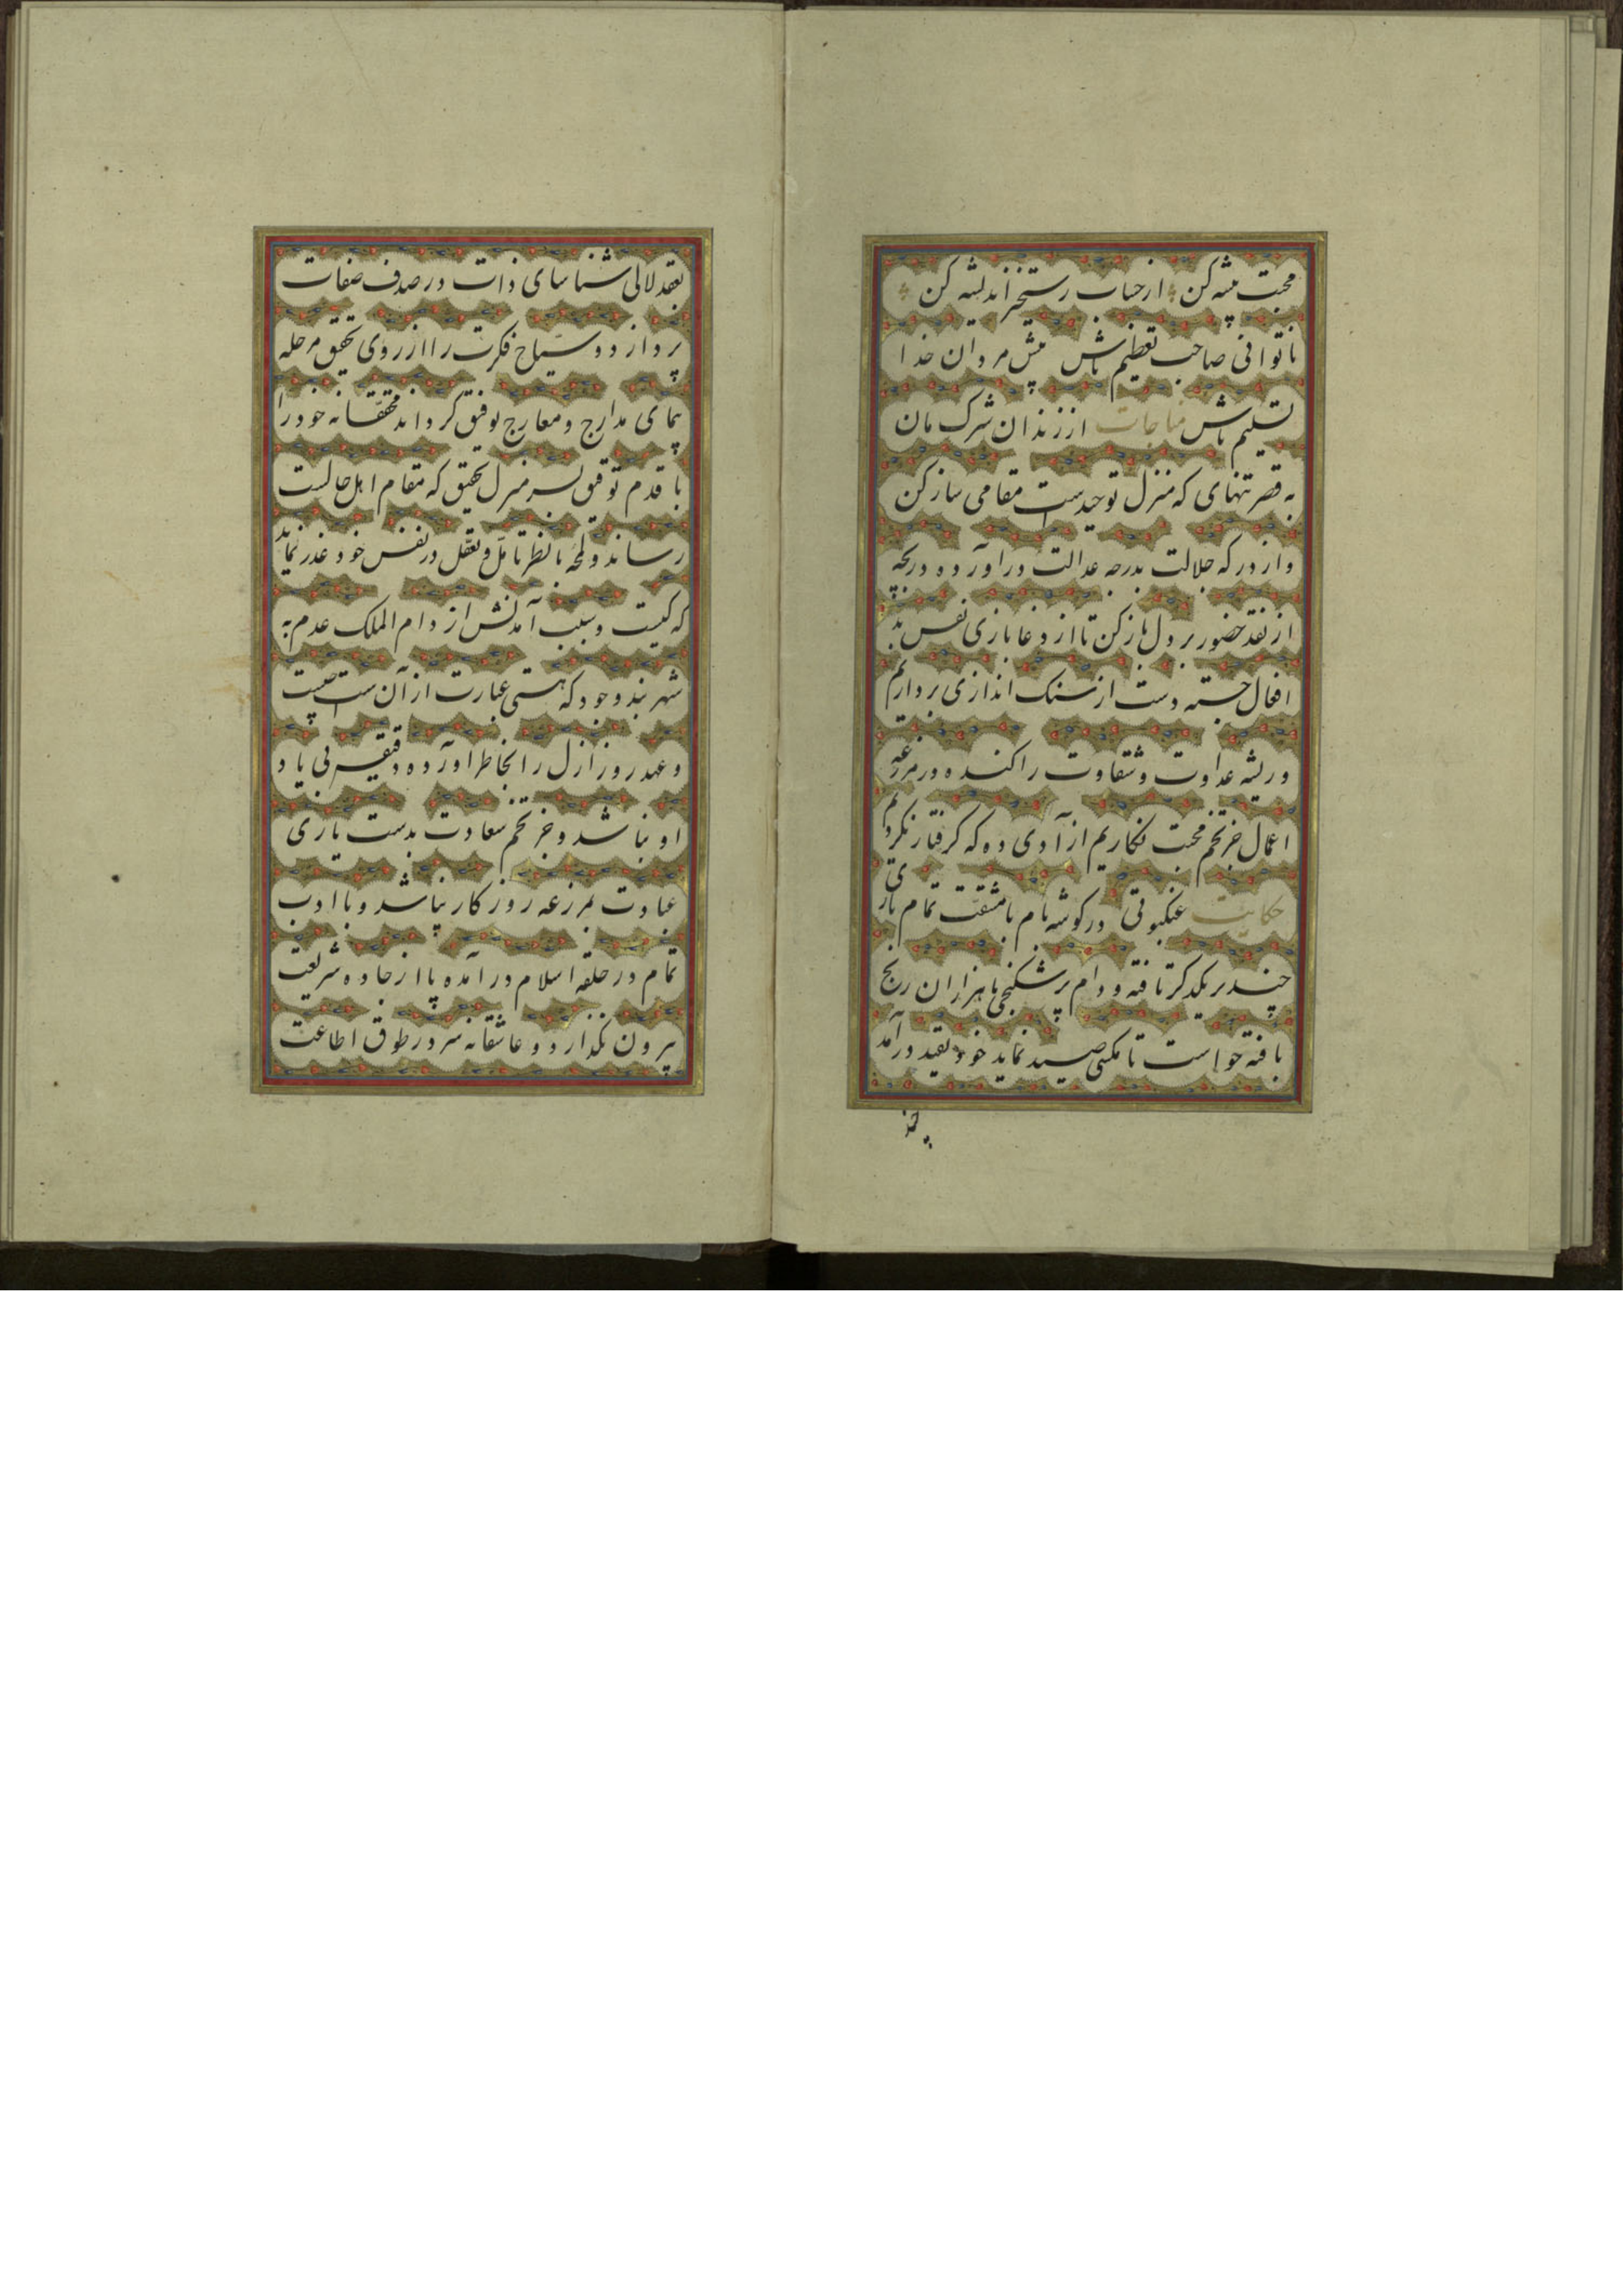 محبت پیشه کن از حساب رستخیز اندیشه کن
تا توانی صاحب تعظیم باش پیش مردان خدا
تسلیم باش مناجات از زندان شرک مان
به قصر تنهای که منزل توحیدست مقامی ساز کن
و از درکه جلالت بدرجه عدالت دراورده دریچه
از نقد حضور بر دل باز کن تا از دغا بازی نفس بد
افعال جسته دست از سنک اندازی برداریم
و ریشه عداوت و شقاوت را کنده در مزرعه
اعمال جز تخم محبت نکاریم از آدی ده که کرفتار نکردیم
حکایت عنکبوتی در کوشه بام با مشقت تمام تاری
چند بر یکدکر تافته و دام پر شکنجی با هزاران رنج
بافته خواست تا مکسی صید نماید خود بقید درآمد
بعقد لالی شناسای ذات در صدف صفات
پردازد و سیاح فکرت را از روی تحقیق مرحله
پیمای مدارج و معارج توفیق کرداند محققانه خود را
با قدم توفیق بسر منزل تحقیق که مقام اهل حالست
رساند و لمحه با نظر تامل و تعقل در نفس خود غدر نماید
که کیست و سبب آمدنش از دام الملک عدم به
شهر بند وجود که هستی عبارت از آن ست چیست
و عهد روز ازل را بخاطر اورده دقیقه بی یاد
او نباشد و جز تخم سعادت بدست یاری
عبادت بمزرعه روزکار نپاشد و با ادب
تمام در حلقه اسلام در آمده پا از جاده شریعت
بیرون نکذارد و عاشقانه سر در طوق اطاعت